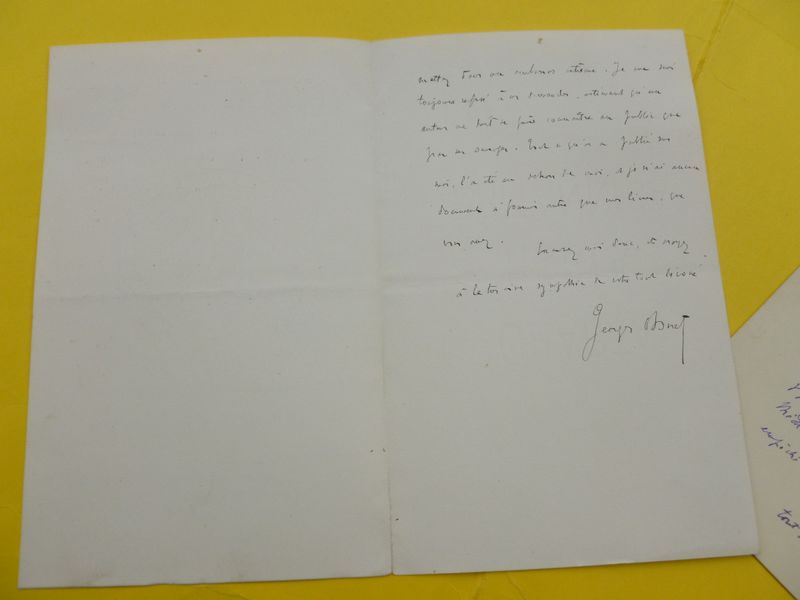 mettez tous au même niveau. Je me suis
toujours refusé à ces demandes, estimant qu'un
auteur ne doit se faire connaître au public que
par ses ouvrages. Tout ce qu'on a publié sur
moi, l'a été en dehors de moi, et je n'ai aucun
document à fournir autre que mes livres, que
vous avez.
Excusez moi donc, et croyez
à la très vive sympathie de votre tout dévoué
Georges Ohnet
tout